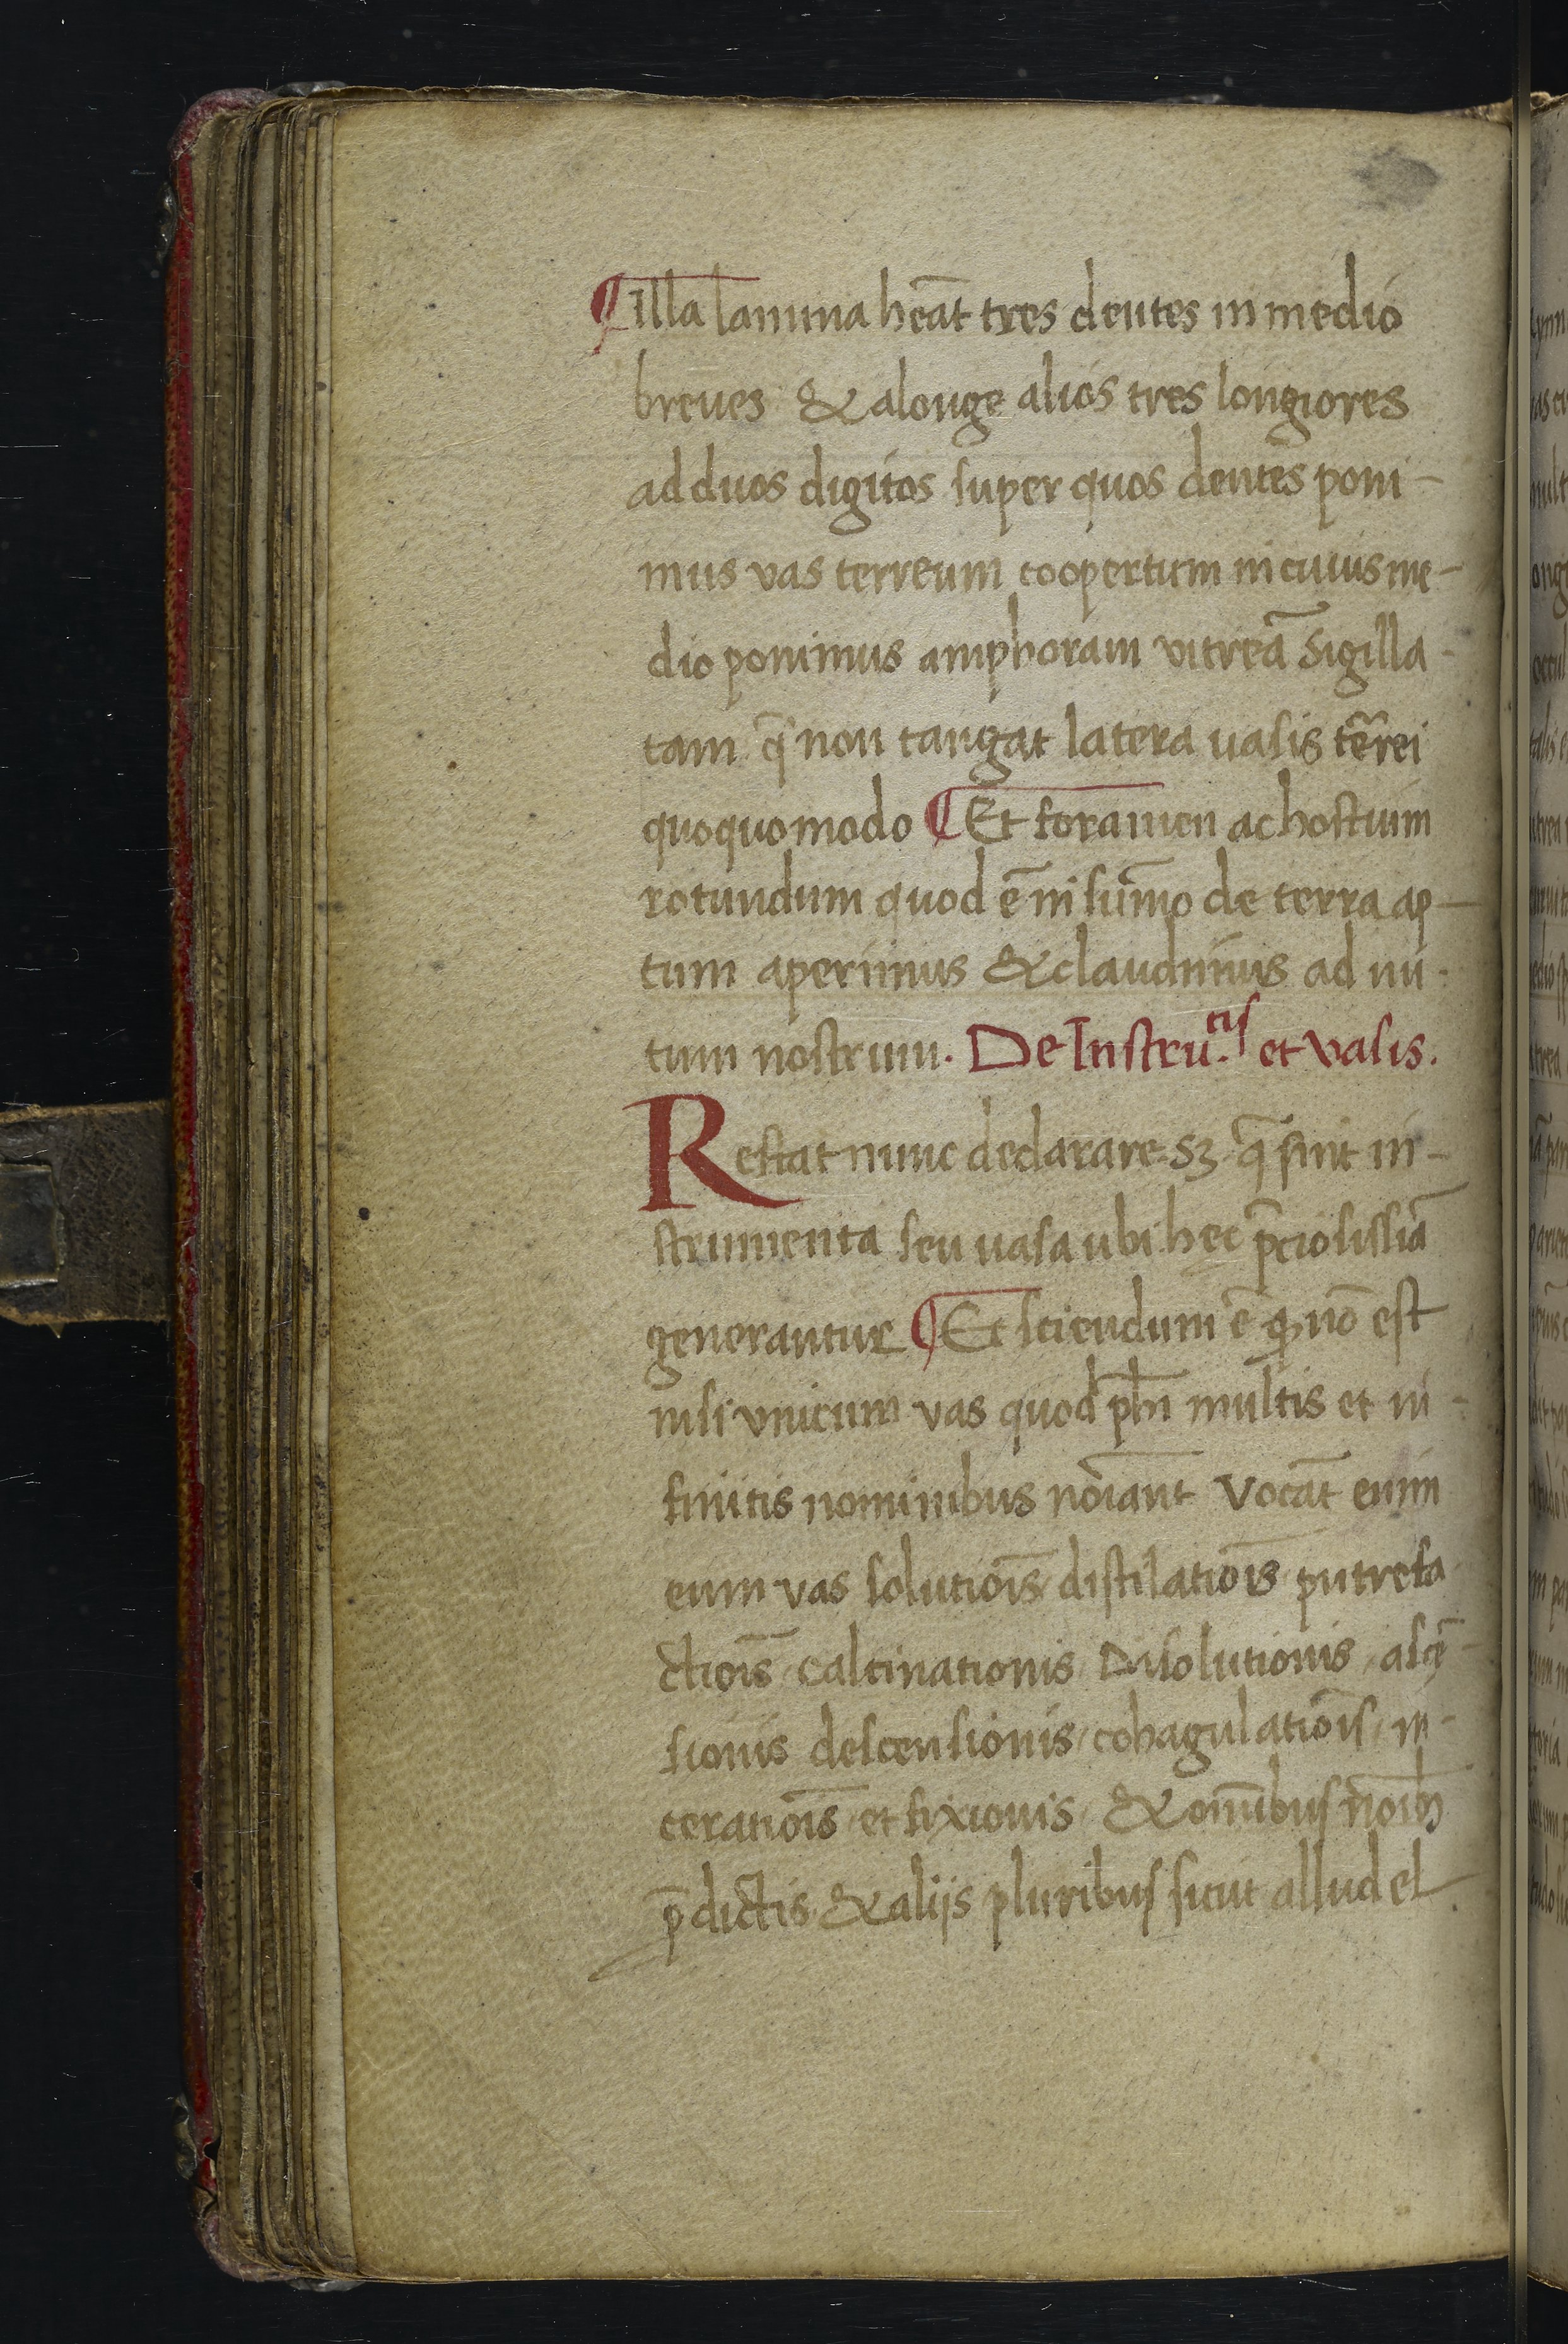 ¶ illa lamina heāt tres dentes in medio
breues & alonge alios tres longiores
ad duos digitos super quos dentes poni-
mus vas terreum coopertum in cuius me-
dio ponimus amphoram vitreā sigilla-
tam q̄ non tangat latera uasis tērei
quoquomodo ¶ Et foramen ac hostium
rotundum quod ē in sum̄o de terra ap-
tum aperimus & claudimus ad nu-
tum nostrum. De Instru.tis et vasis.
Restat nunc declarare sꝫ q̄ sint in-
strumenta seu uasa ubi hec p̄ciosissīa
generantur ¶ Et sciendum ē ꝙ nō est
nisi vnicum vas quod ph̄i multis et in-
finitis nominibus noīant Vocāt enim
eum vas solutiōis distilatiōis putrefa
ctiōis calcinationis Disolutionis ascē-
sionis descensionis cohagulatiōis in-
ceratiōis et fixionis & om̄ibus noībꝫ
p̄dictis & aliis pluribus sicut alludel